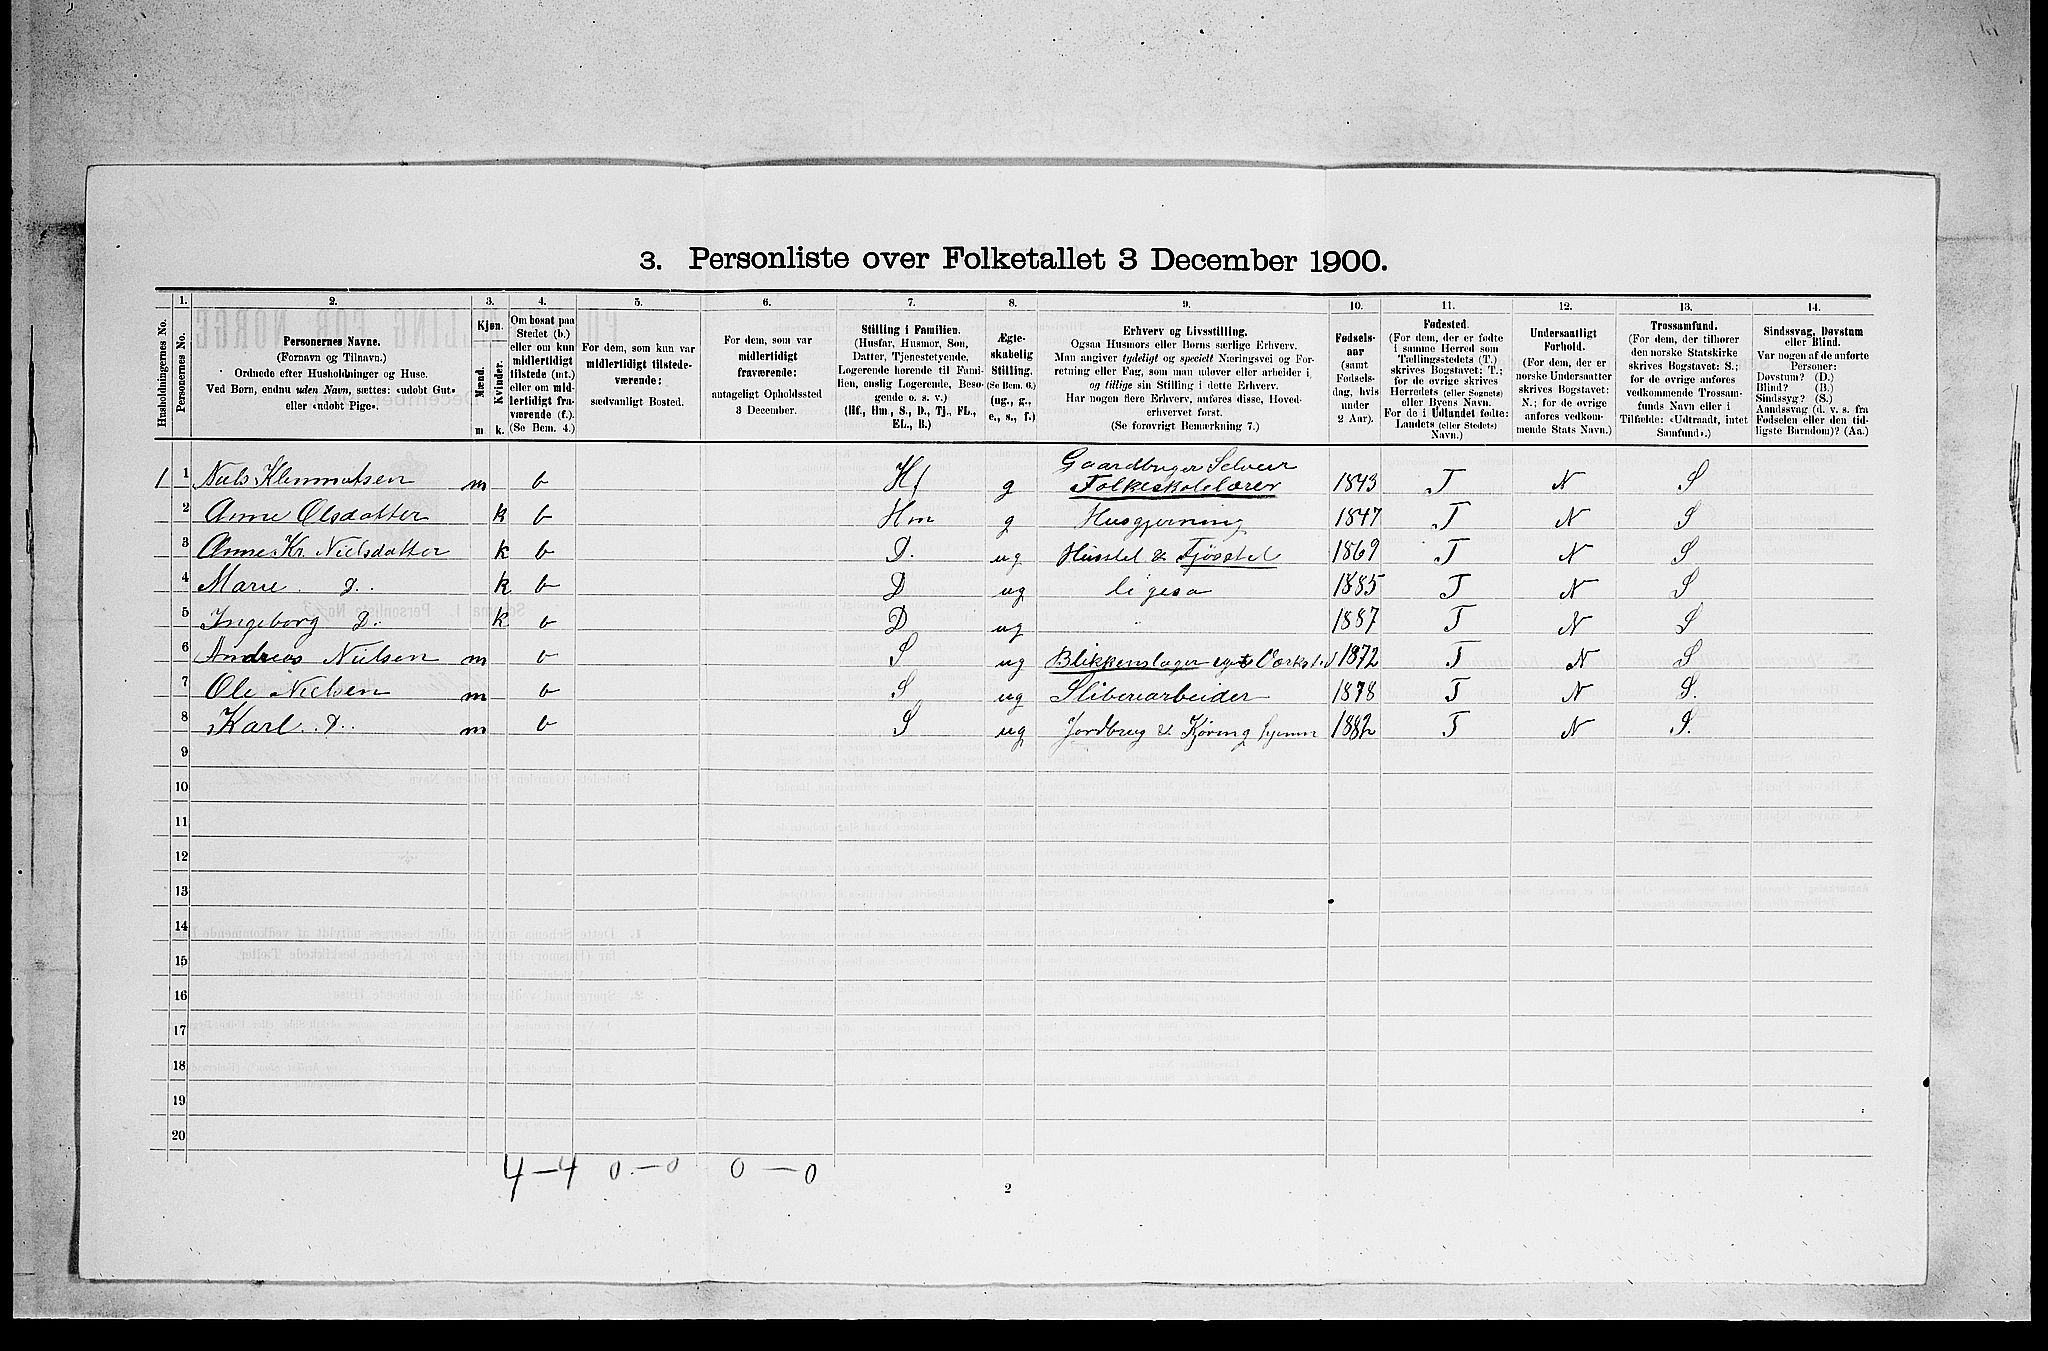 3. Personliste over Folketallet 3 December 1900.
Husholdningernes No.
1.
Personernes No.
2.
Personernes Navne.
(Fornavn og Tilnavn.)
Ordnede efter Husholdninger og Huse.
Ved Børn, endnu uden Navn, sættes: «udobt Gut»
eller «udobt Pige».
3.
Kjøn.
Mænd.
Kvinder.
m k.
4.
Om bosat paa
Stedet (b.)
eller om kun
midlertidigt
tilstede (mt.)
eller om mid-
lertidigt fra-
værende (f.).
(Se Bem. 4.)
5.
For dem, som kun var
midlertidigt tilstede-
værende:
sædvanligt Bosted.
6.
For dem, som var
midlertidigt
fraværende:
antageligt Opholdssted
3 December.
7.
Stilling i Familien.
(Husfar, Husmor, Søn,
Datter, Tjenestetyende,
Logerende hørende til Fami-
lien, enslig Logerende, Besø-
gende o. s. v.)
(Hf., Hm., S., D., Tj., FL.,
EL., B.)
8.
Ægte-
skabelig
Stilling.
(Se Bem. 6.)
(ug., g.,
e., s., f.)
9.
Erhverv og Livsstilling.
Ogsaa Husmors eller Børns særlige Erhverv.
Man angiver tydeligt og specielt Næringsvei og For-
retning eller Fag, som man udøver eller arbeider i,
og tillige sin Stilling i dette Erhverv.
Har nogen flere Erhverv, anføres disse, Hoved-
erhvervet først.
(Se forøvrigt Bemærkning 7.)
10.
Fødsels-
aar
(samt
Fødsels-
dag, hvis
under
2 Aar).
11.
Fødested.
(For dem, der er fødte
i samme Herred som
Tællingsstedets (T.)
skrives Bogstavet: T.;
for de øvrige skrives
Herredets (eller Sognets)
eller Byens Navn.
For de i Udlandet fødte:
Landets (eller Stedets)
Navn.)
12.
Undersaatligt
Forhold.
(For dem, der er
norske Undersaatter
skrives Bogstavet:
N.; for de øvrige
anføres vedkom-
mende Stats Navn.)
13.
Trossamfund.
(For dem, der tilhører
den norske Statskirke
skrives Bogstavet: S.;
for de øvrige anføres
vedkommende Trossam-
funds Navn eller i
Tilfælde: «Udtraadt, intet
Samfund».)
14.
Sindssvag, Døvstum
eller Blind.
Var nogen af de anførte
Personer:
Døvstum? (D.)
Blind? (B.)
Sindssyg? (S.)
Aandssvag (d. v. s. fra
Fødselen eller den tid-
ligste Barndom)? (Aa.)
1 1 Niels Klemmetsen m b Hf g Gaardbruger Selveier
Folkeskolelærer 1843 T N S
2 Anne Olsdatter k b Hm g Husgjerning 1847 T N S
3 Anne Kr Nielsdatter k b D. ug Husstel & Fjøsstel 1869 T N S
4 Marie D. k b D ug ligesa 1885 T N S
5 Ingeborg D. k b D ug 1887 T N S
6 Andreas Nielsen m b S ug Blikkenslager eget Værksted 1872 T N S
7 Ole Nielsen m b S ug Sliberiarbeider 1878 T N S.
8 Karl D. m b S ug Jordbrug & Kjøring hjemme 1882 T N S.
9
10
11
12
13
14
15
16
17
18
19
20
4-4 0-0 0-0
2